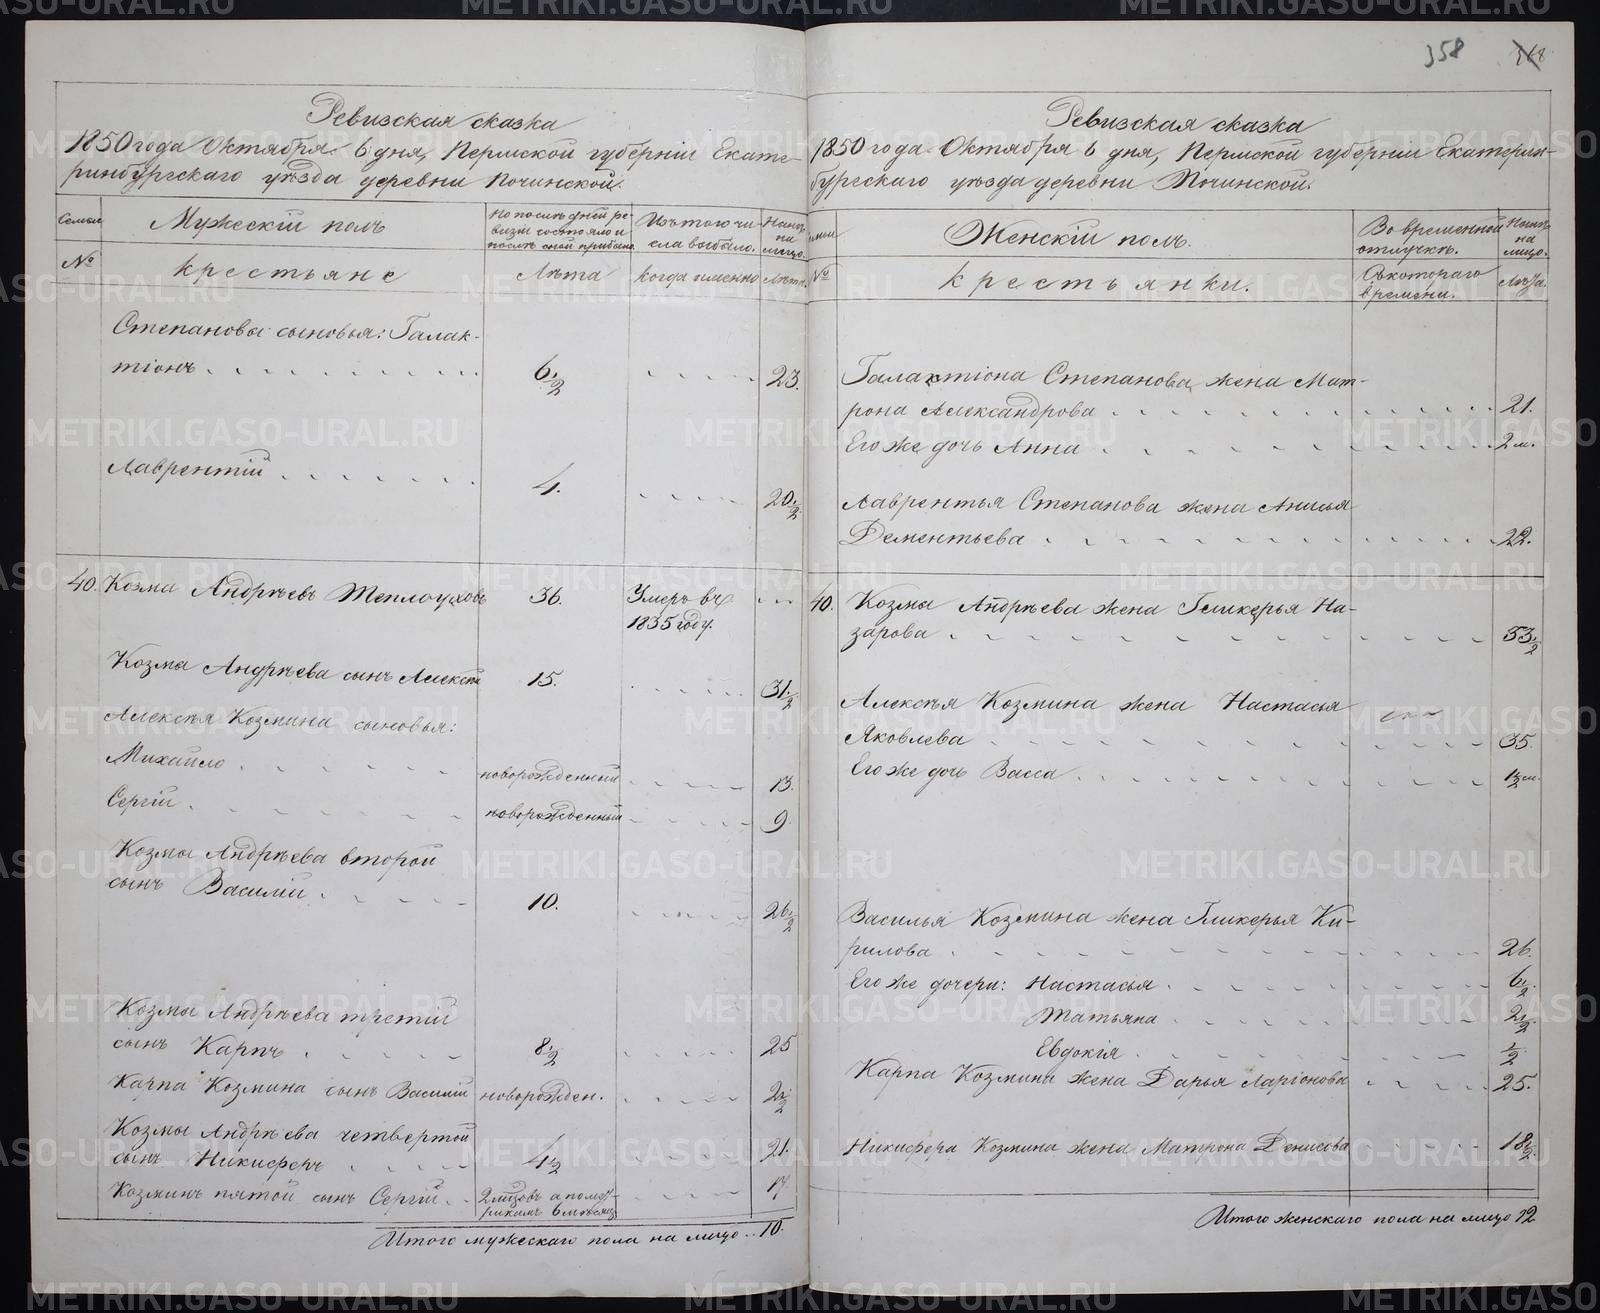 358
Ревизская сказка
1850 года Октября 6 дня, Пермской губерніи Екате-
ринбургскаго уѣзда деревни Починской.
Семьи
Мужескій полъ
По послѣдней ре-
визіи состояло и
послѣ оной прибыло.
Изъ того чи-
сла выбыло.
Нынѣ
на
лицо.
№
крестьяне
Лѣта
когда именно
Лѣта.
Степановы сыновья: Галак-
тіонъ
6 1/2
23.
Лаврентій
4.
20 1/2
40. Козма Андрѣевъ Теплоуховъ
36.
Умеръ въ
1835 году.
Козмы Андрѣева сынъ Алексѣй
15.
31 1/2
Алексѣя Козмина сыновья:
Михайло
новорожденный
13.
Сергій
новорожденный
9.
Козмы Андрѣева второй
сынъ Василій
10.
26 1/2
Козмы Андрѣева третій
сынъ Карпъ
8 1/2
25
Карпа Козмина сынъ Василій
новорожден.
2 1/2
Козмы Андрѣева четвертой
сынъ Никифоръ
4 1/2
21.
Козминъ пятой сынъ Сергій
17
Итого мужескаго пола на лицо .. 10.
Ревизская сказка
1850 года Октября 6 дня, Пермской губерніи Екатерин-
бургскаго уѣзда деревни Починской.
Женскій полъ.
Во временной
отлучкѣ.
Нынѣ
на
лицо.
№
крестьянки.
Съ котораго
времени.
Лѣта.
Галактіона Степанова жена Мат-
рона Александрова
21.
Его же дочь Анна
2 м.
Лаврентья Степанова жена Анисья
Дементьева
22.
40.
Козмы Андрѣева жена Гликерья На-
зарова
53 1/2
Алексѣя Козмина жена Настасья
Яковлева
35.
Его же дочь Васса
Василья Козмина жена Гликерья Ки-
рилова
26.
Его же дочери: Настасья
6 1/2
Татьяна
2 1/2
Евдокія
1/2
Карпа Козмина жена Дарья Ларіонова
25.
Никифора Козмина жена Матрона Денисова
18 1/2
Итого женскаго пола на лицо 12
METRIKI.GASO-URAL.RU